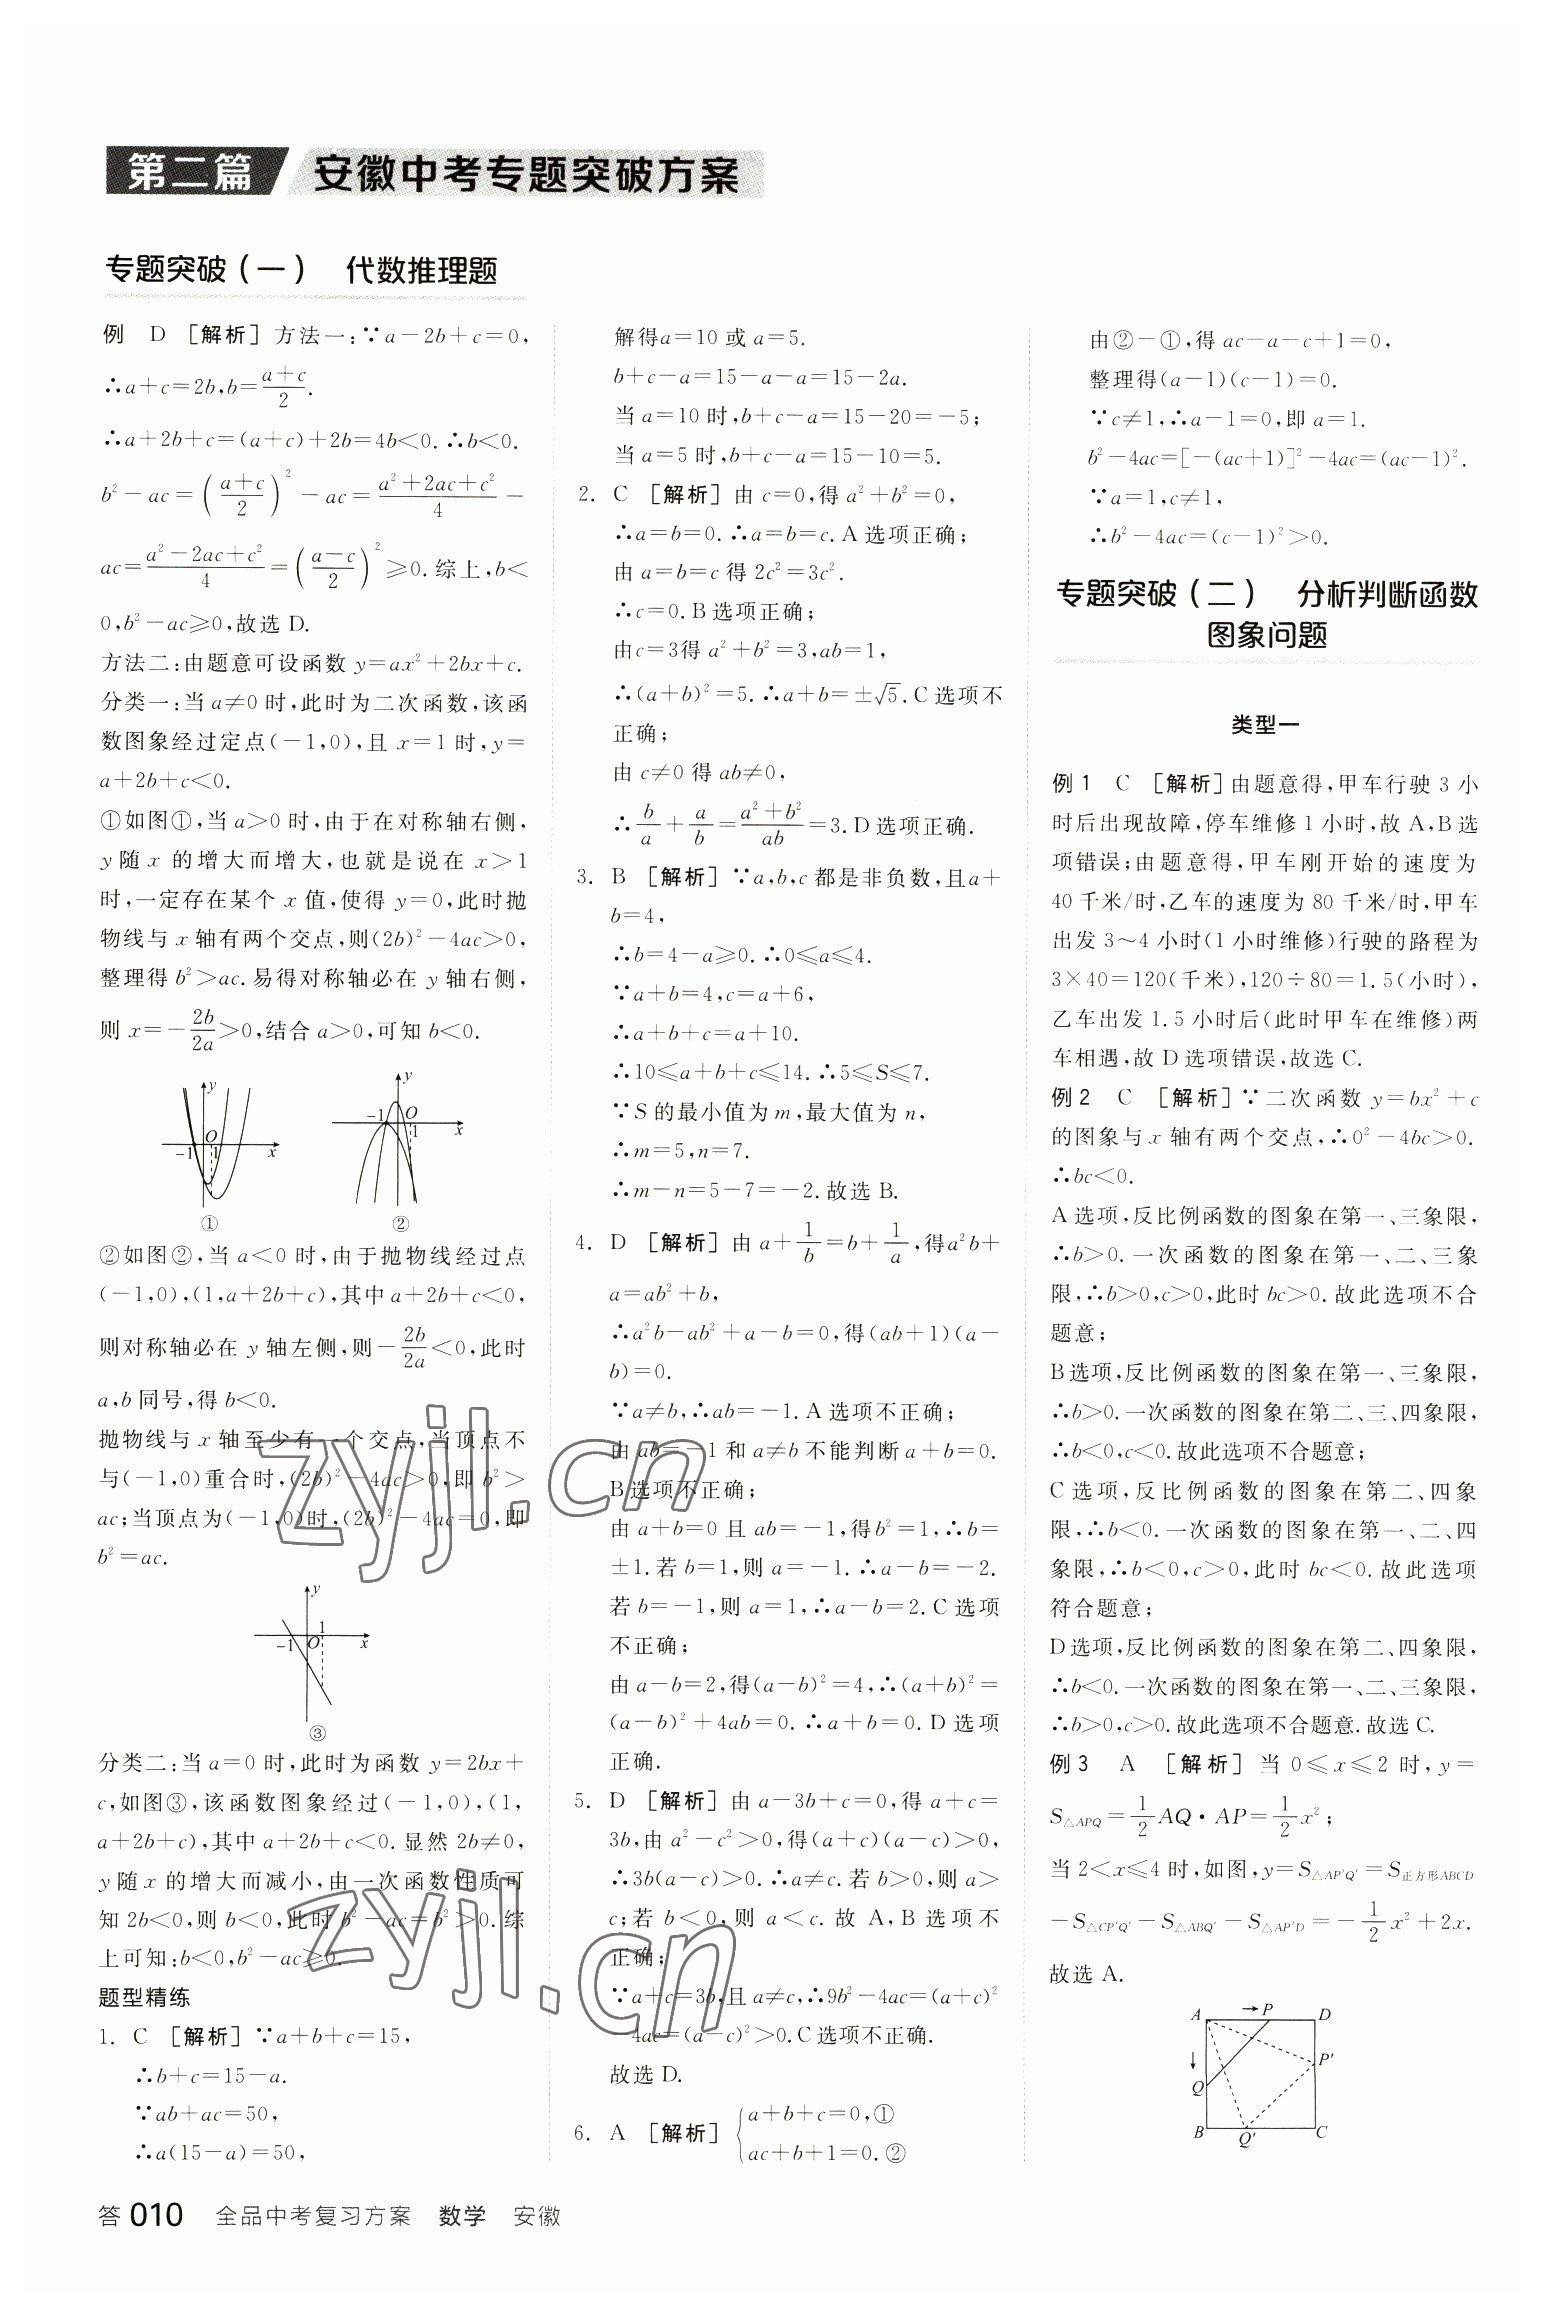 第二篇 安徽中考专题突破方案
专题突破(一) 代数推理题
例 D [解析]方法一:∵a-2b+c=0,
∴a+c=2b,b=(a+c)/2.
∴a+2b+c=(a+c)+2b=4b<0.∴b<0.
b²-ac=((a+c)/2)²-ac=(a²+2ac+c²)/4-
ac=(a²-2ac+c²)/4=((a-c)/2)²≥0.综上,b<
0,b²-ac≥0,故选 D.
方法二:由题意可设函数 y=ax²+2bx+c.
分类一:当 a≠0 时,此时为二次函数,该函
数图象经过定点(-1,0),且 x=1 时,y=
a+2b+c<0.
①如图①,当 a>0 时,由于在对称轴右侧,
y 随 x 的增大而增大,也就是说在 x>1
时,一定存在某个 x 值,使得 y=0,此时抛
物线与 x 轴有两个交点,则(2b)²-4ac>0,
整理得 b²>ac.易得对称轴必在 y 轴右侧,
则 x=-2b/2a>0,结合 a>0,可知 b<0.
y
O
-1 1 x
①
y
-1 O
1 x
②
②如图②,当 a<0 时,由于抛物线经过点
(-1,0),(1,a+2b+c),其中 a+2b+c<0,
则对称轴必在 y 轴左侧,则-2b/2a<0,此时
a,b 同号,得 b<0.
抛物线与 x 轴至少有一个交点,当顶点不
与(-1,0)重合时,(2b)²-4ac>0,即 b²>
ac;当顶点为(-1,0)时,(2b)²-4ac=0,即
b²=ac.
y
1
-1 O x
③
分类二:当 a=0 时,此时为函数 y=2bx+
c,如图③,该函数图象经过(-1,0),(1,
a+2b+c),其中 a+2b+c<0.显然 2b≠0,
y 随 x 的增大而减小,由一次函数性质可
知 2b<0,则 b<0,此时 b²-ac=b²>0.综
上可知:b<0,b²-ac≥0.
题型精练
1. C [解析]∵a+b+c=15,
∴b+c=15-a.
∵ab+ac=50,
∴a(15-a)=50,
解得a=10 或 a=5.
b+c-a=15-a-a=15-2a.
当 a=10 时,b+c-a=15-20=-5;
当 a=5 时,b+c-a=15-10=5.
2. C [解析]由 c=0,得 a²+b²=0,
∴a=b=0.∴a=b=c.A 选项正确;
由 a=b=c 得 2c²=3c².
∴c=0.B 选项正确;
由c=3得 a²+b²=3,ab=1,
∴(a+b)²=5.∴a+b=±√5.C 选项不
正确;
由 c≠0 得 ab≠0,
∴b/a+a/b=(a²+b²)/ab=3.D 选项正确.
3. B [解析]∵a,b,c 都是非负数,且a+
b=4,
∴b=4-a≥0.∴0≤a≤4.
∵a+b=4,c=a+6,
∴a+b+c=a+10.
∴10≤a+b+c≤14.∴5≤S≤7.
∵S 的最小值为 m,最大值为 n,
∴m=5,n=7.
∴m-n=5-7=-2.故选 B.
4. D [解析]由 a+1/b=b+1/a,得a²b+
a=ab²+b,
∴a²b-ab²+a-b=0,得(ab+1)(a-
b)=0.
∵a≠b,∴ab=-1.A 选项不正确;
由 ab=-1 和 a≠b 不能判断 a+b=0.
B 选项不正确;
由 a+b=0 且 ab=-1,得b²=1,∴b=
±1.若 b=1,则 a=-1.∴a-b=-2.
若 b=-1,则 a=1,∴a-b=2.C 选项
不正确;
由 a-b=2,得(a-b)²=4,∴(a+b)²=
(a-b)²+4ab=0.∴a+b=0.D 选项
正确.
5. D [解析]由 a-3b+c=0,得 a+c=
3b,由 a²-c²>0,得(a+c)(a-c)>0,
∴3b(a-c)>0.∴a≠c.若 b>0,则 a>
c;若 b<0,则 a<c.故 A,B 选项不
正确;
∵a+c=3b,且 a≠c,∴9b²-4ac=(a+c)²
-4ac=(a-c)²>0.C 选项不正确.
故选 D.
6. A [解析] {a+b+c=0,①
ac+b+1=0.②
由②-①,得 ac-a-c+1=0,
整理得(a-1)(c-1)=0.
∵c≠1,∴a-1=0,即 a=1.
b²-4ac=[-(ac+1)]²-4ac=(ac-1)².
∵a=1,c≠1,
∴b²-4ac=(c-1)²>0.
专题突破(二) 分析判断函数
图象问题
类型一
例1 C [解析]由题意得,甲车行驶 3 小
时后出现故障,停车维修 1 小时,故 A,B 选
项错误;由题意得,甲车刚开始的速度为
40 千米/时,乙车的速度为 80 千米/时,甲车
出发 3~4 小时(1 小时维修)行驶的路程为
3×40=120(千米),120÷80=1.5(小时),
乙车出发 1.5 小时后(此时甲车在维修)两
车相遇,故 D 选项错误,故选 C.
例2 C [解析]∵二次函数 y=bx²+c
的图象与 x 轴有两个交点,∴0²-4bc>0.
∴bc<0.
A 选项,反比例函数的图象在第一、三象限,
∴b>0.一次函数的图象在第一、二、三象
限,∴b>0,c>0,此时 bc>0.故此选项不合
题意;
B选项,反比例函数的图象在第一、三象限,
∴b>0.一次函数的图象在第二、三、四象限,
∴b<0,c<0.故此选项不合题意;
C 选项,反比例函数的图象在第二、四象
限,∴b<0.一次函数的图象在第一、二、四
象限,∴b<0,c>0,此时 bc<0.故此选项
符合题意;
D选项,反比例函数的图象在第二、四象限,
∴b<0.一次函数的图象在第一、二、三象限,
∴b>0,c>0.故此选项不合题意.故选 C.
例3 A [解析]当 0≤x≤2 时,y=
S△APQ=1/2AQ·AP=1/2x²;
当 2<x≤4 时,如图,y=S△AP′Q′=S正方形ABCD
-S△CP′Q′-S△ABQ′-S△AP′D=-1/2x²+2x.
故选 A.
A P D
P′
Q
B Q′ C
答 010 全品中考复习方案 数学 安徽
zyjl.cn
zyjl.cn